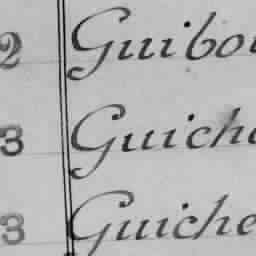 2 Guibou
3 Guiche
3 Guiche